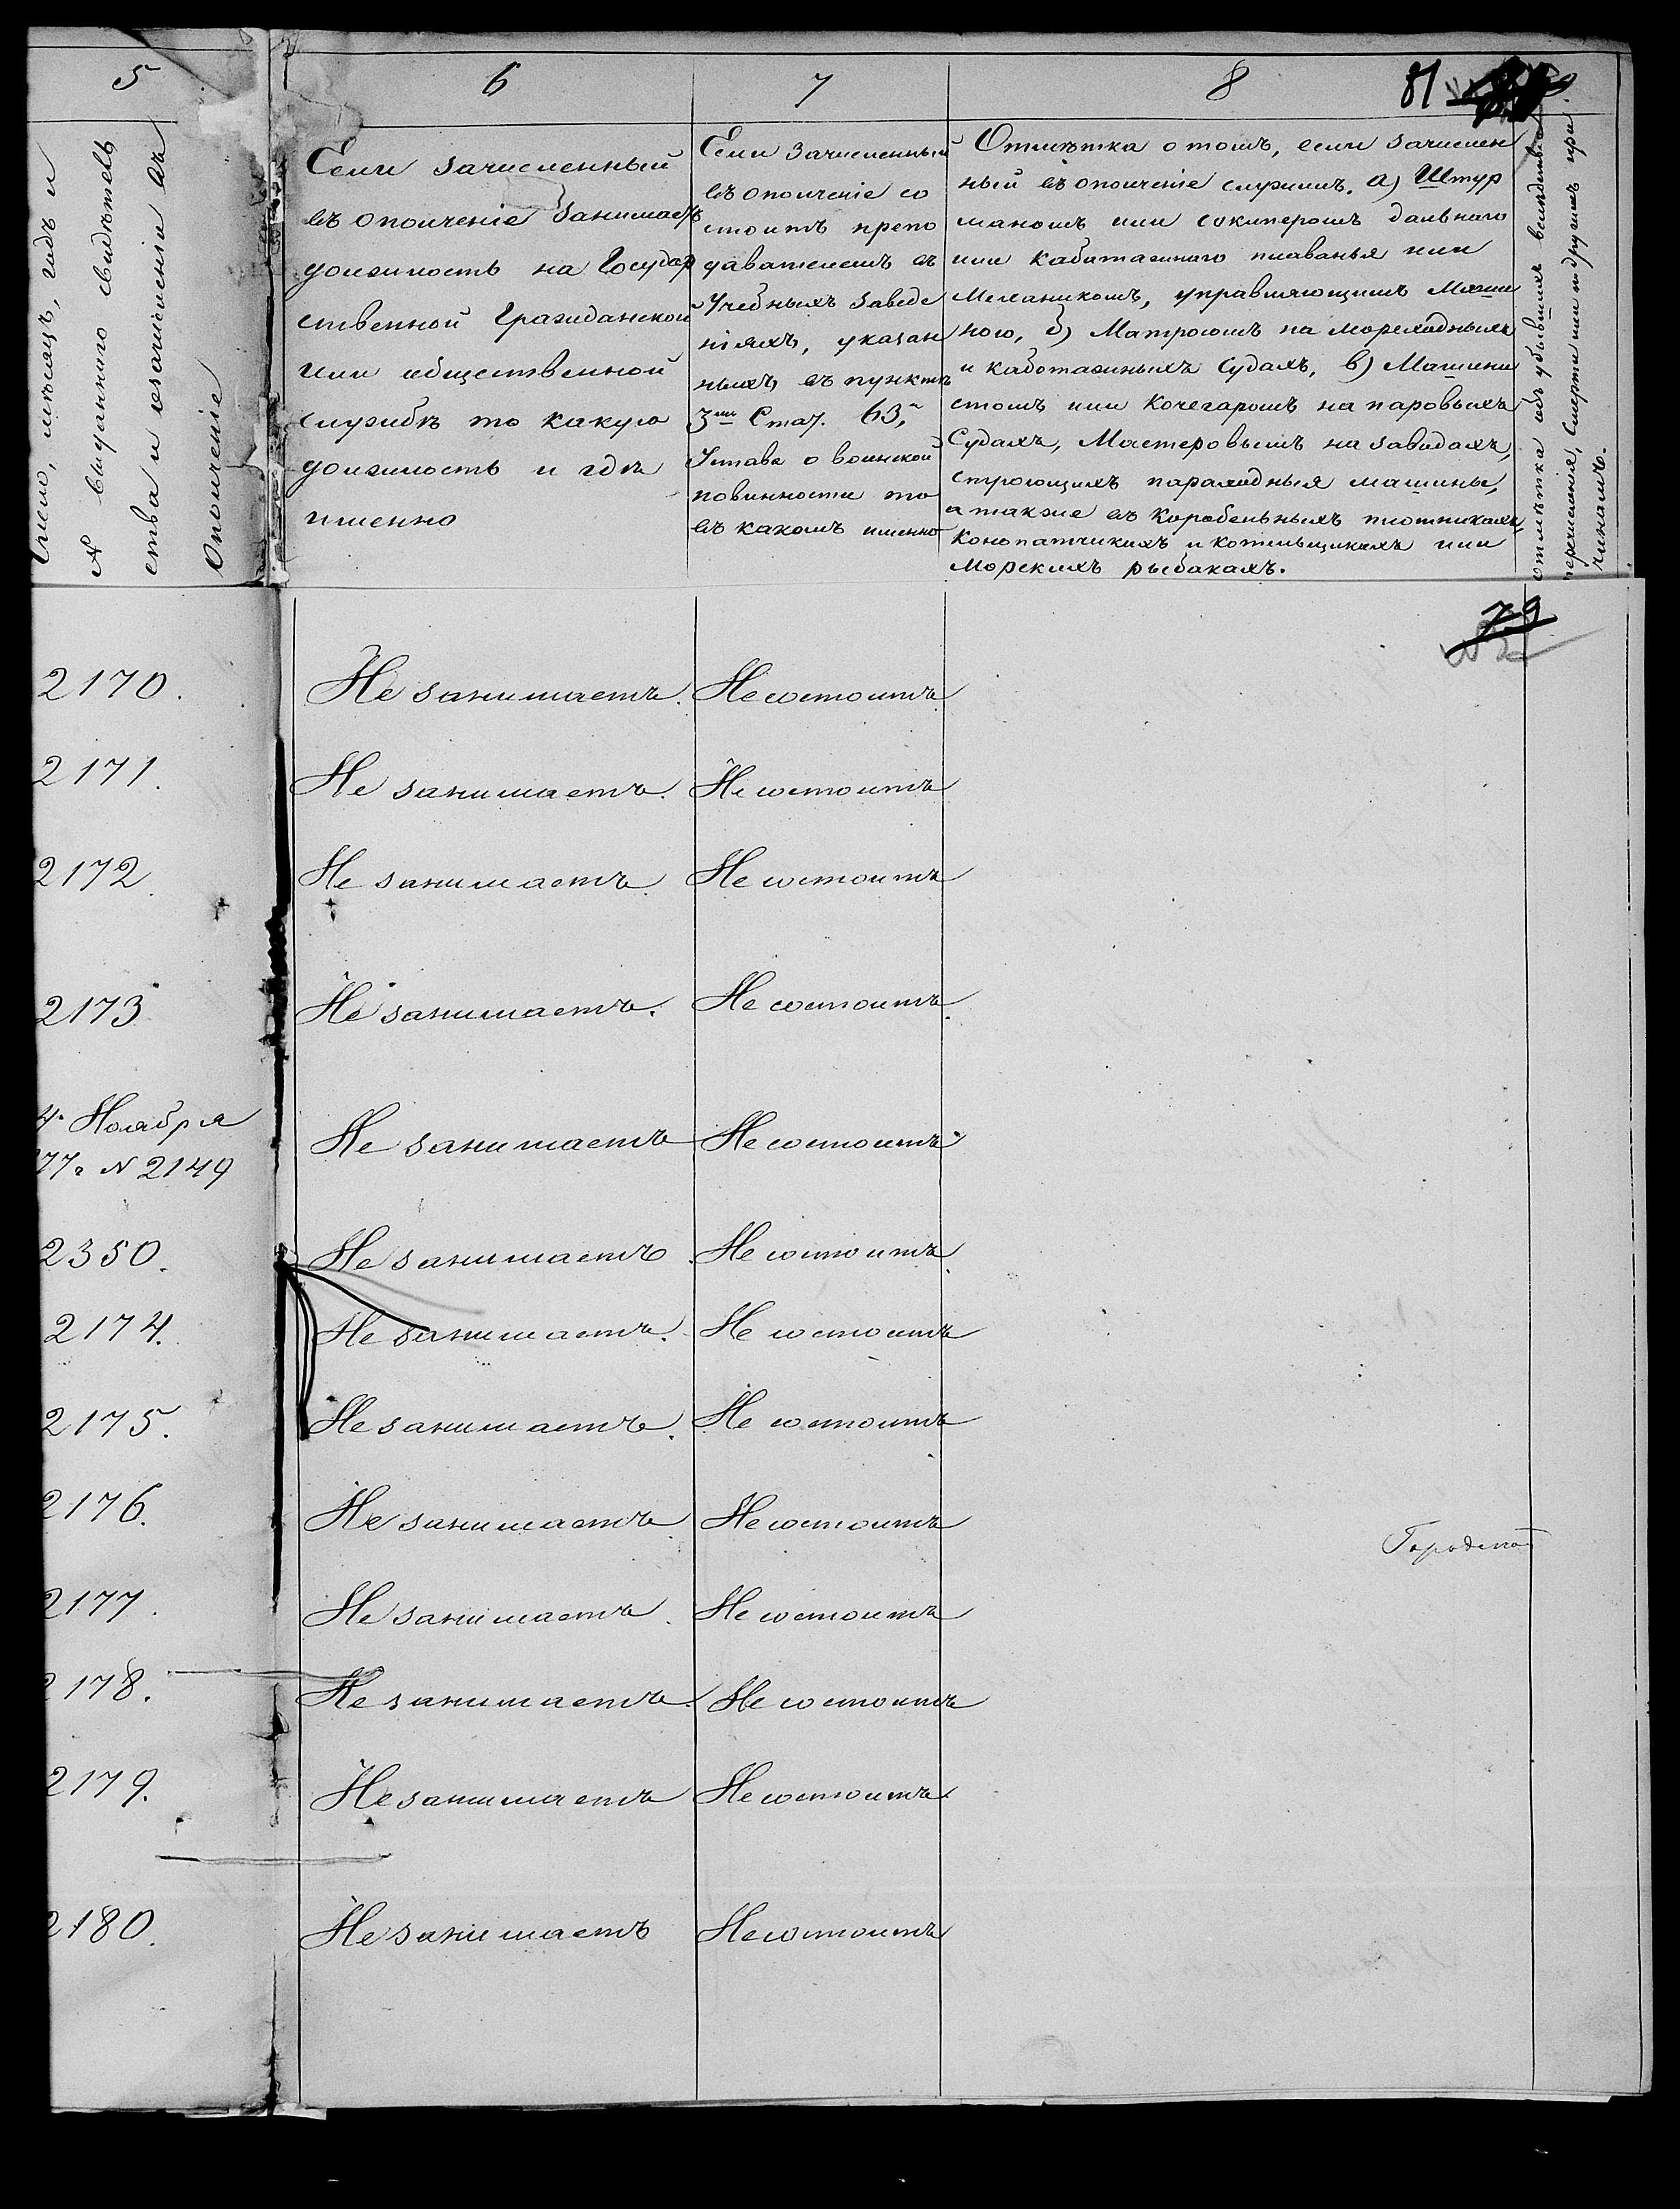 5
6
7
8
81
Число, мѣсяцъ, годъ и
№ выданнаго свидѣтель
ства и зачисленіи въ
Ополченіе
Если зачисленный
въ ополченіе занимаетъ
должность на Государ
ственной Гражданской
или общественной
службѣ то какую
должность и гдѣ
именно
Если зачисленный
въ ополченіе со
стоитъ препо
давателемъ въ
Учебныхъ заведе
ніяхъ, указан
ныхъ въ пунктѣ
3мъ Стат. 63,
Устава о воинской
повинности то
въ какомъ именно
Отмѣтка о томъ, если зачислен
ный въ ополченіе служитъ. а) Штур
маномъ или шкиперомъ дальнаго
или каботажнаго плаванья или
Механикомъ, управляющимъ Маши
ною, б) Матросомъ на мореходныхъ
и каботажныхъ судахъ, в) Машини
стомъ или Кочегаромъ на паровыхъ
Судахъ, Мастеровымъ на заводахъ,
строющихъ пароходныя машины,
а также въ Корабельныхъ плотникахъ,
Конопатчикахъ и котельщикахъ или
Морскихъ рыбакахъ.
отмѣтка объ убывшихъ вслѣдствіе
перечисленія, Смерти или по другимъ при
чинамъ.
79
2170. Не занимаетъ. Не состоитъ.
2171. Не занимаетъ. Не состоитъ
2172. Не занимаетъ. Не состоитъ
2173 Не занимаетъ. Не состоитъ.
4. Ноября
77г № 2149 Не занимаетъ Не состоитъ
2350. Не занимаетъ. Не состоитъ.
2174. Не занимаетъ. Не состоитъ
2175. Не занимаетъ. Не состоитъ
2176. Не занимаетъ. Не состоитъ
Городской
2177. Не занимаетъ. Не состоитъ
2178. Не занимаетъ. Не состоитъ
2179. Не занимаетъ Не состоитъ
2180. Не занимаетъ Не состоитъ